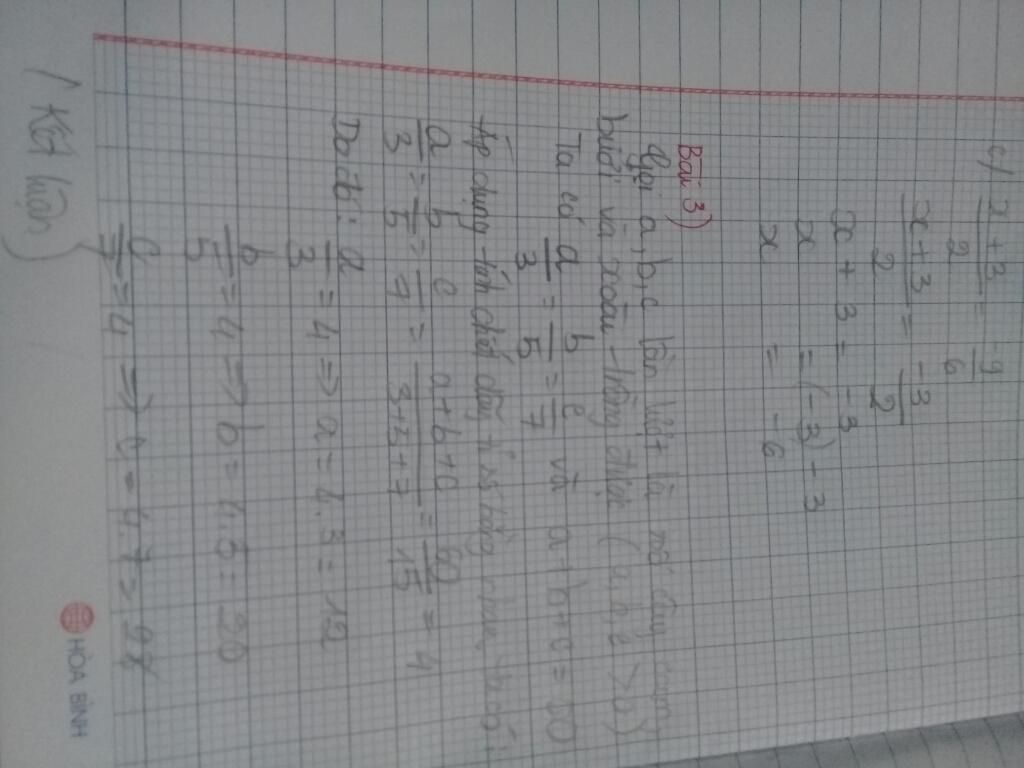 c) x+3/2 = -9/6
x+3/2 = -3/2
x + 3 = -3
x = (-3) - 3
x = -6
Bài 3)
Gọi a, b, c lần lượt là số cây cam,
bưởi và xoài trồng được (a, b, c > 0)
Ta có a/3 = b/5 = c/7 và a + b + c = 60
Áp dụng tính chất dãy tỉ số bằng nhau, ta có:
a/3 = b/5 = c/7 = a+b+c/3+5+7 = 60/15 = 4
Do đó: a/3 = 4 => a = 4.3 = 12
b/5 = 4 => b = 4.5 = 20
c/7 = 4 => c = 4.7 = 28
(Kết luận)
HÒA BÌNH